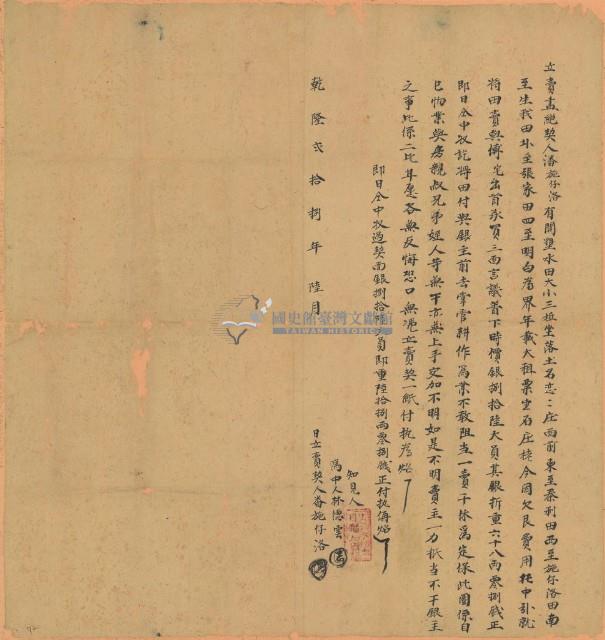 立賣盡絕契人潘施仔洛有開墾水田大小三坵坐落土名恋二庄西前東至秦利田西至施仔洛田南
至生我田北至張家田四至明白為界年載大租粟壹石庄棧今因欠艮費用托中引就
將田賣與 出首承買三面言議着下時價銀捌拾陸大員其銀折重六十八兩零捌戔正
即日仝中收訖將田付與銀主前去掌管耕作為業不敢阻当一賣千休為定保此園係自
己物業與房親叔兄弟姪人等無干亦無上手交加不明如是不明賣主一力抵当不干銀主
之事此係二比甘愿各無反悔恐口無憑立賣契一紙付執為炤
即日仝中收過契面銀捌拾 員即重陸拾捌兩零捌戔正付執再炤
乾隆弍拾捌年陸月
知見人
為中人林德雲
日立賣契人潘施仔洛
國史館臺灣文獻館
TAIWAN HISTORICA